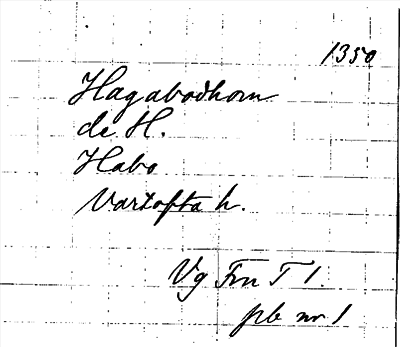 1350
Hagabodhom
de H.
Habo
Vartofta h.
Vg Frn T 1.
pb nr 1